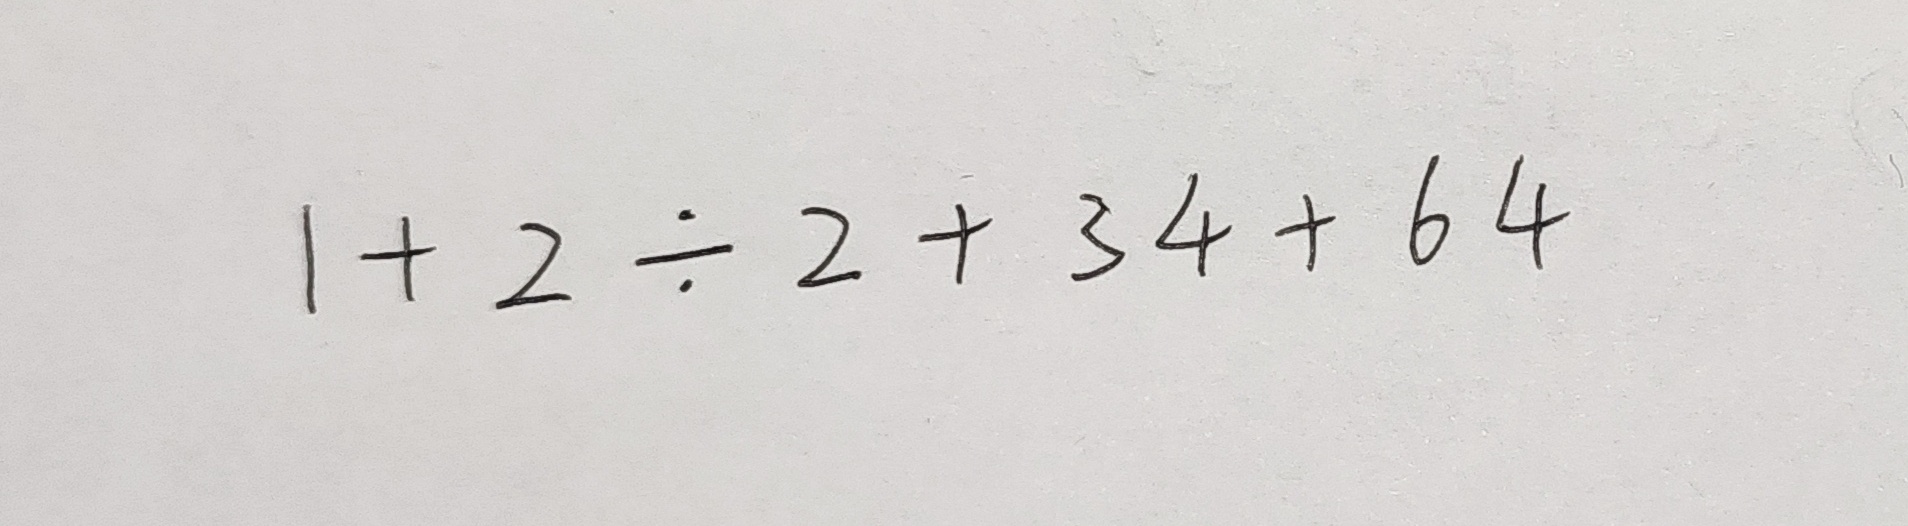 1+2÷2+34+64